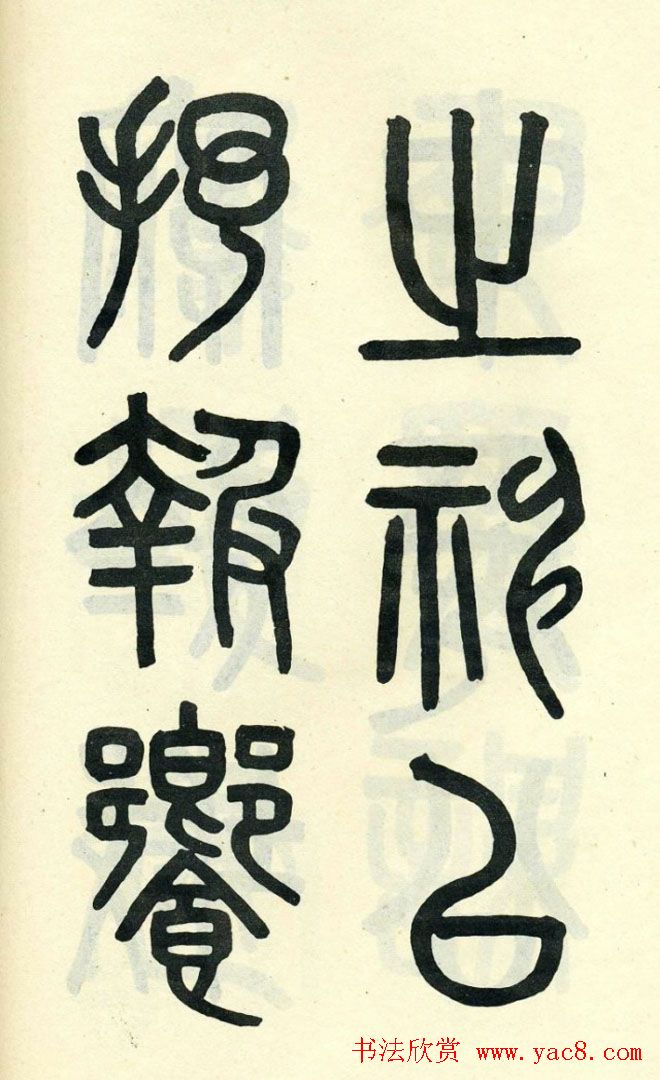 之祀以
抒報饗
书法欣赏 www.yac8.com